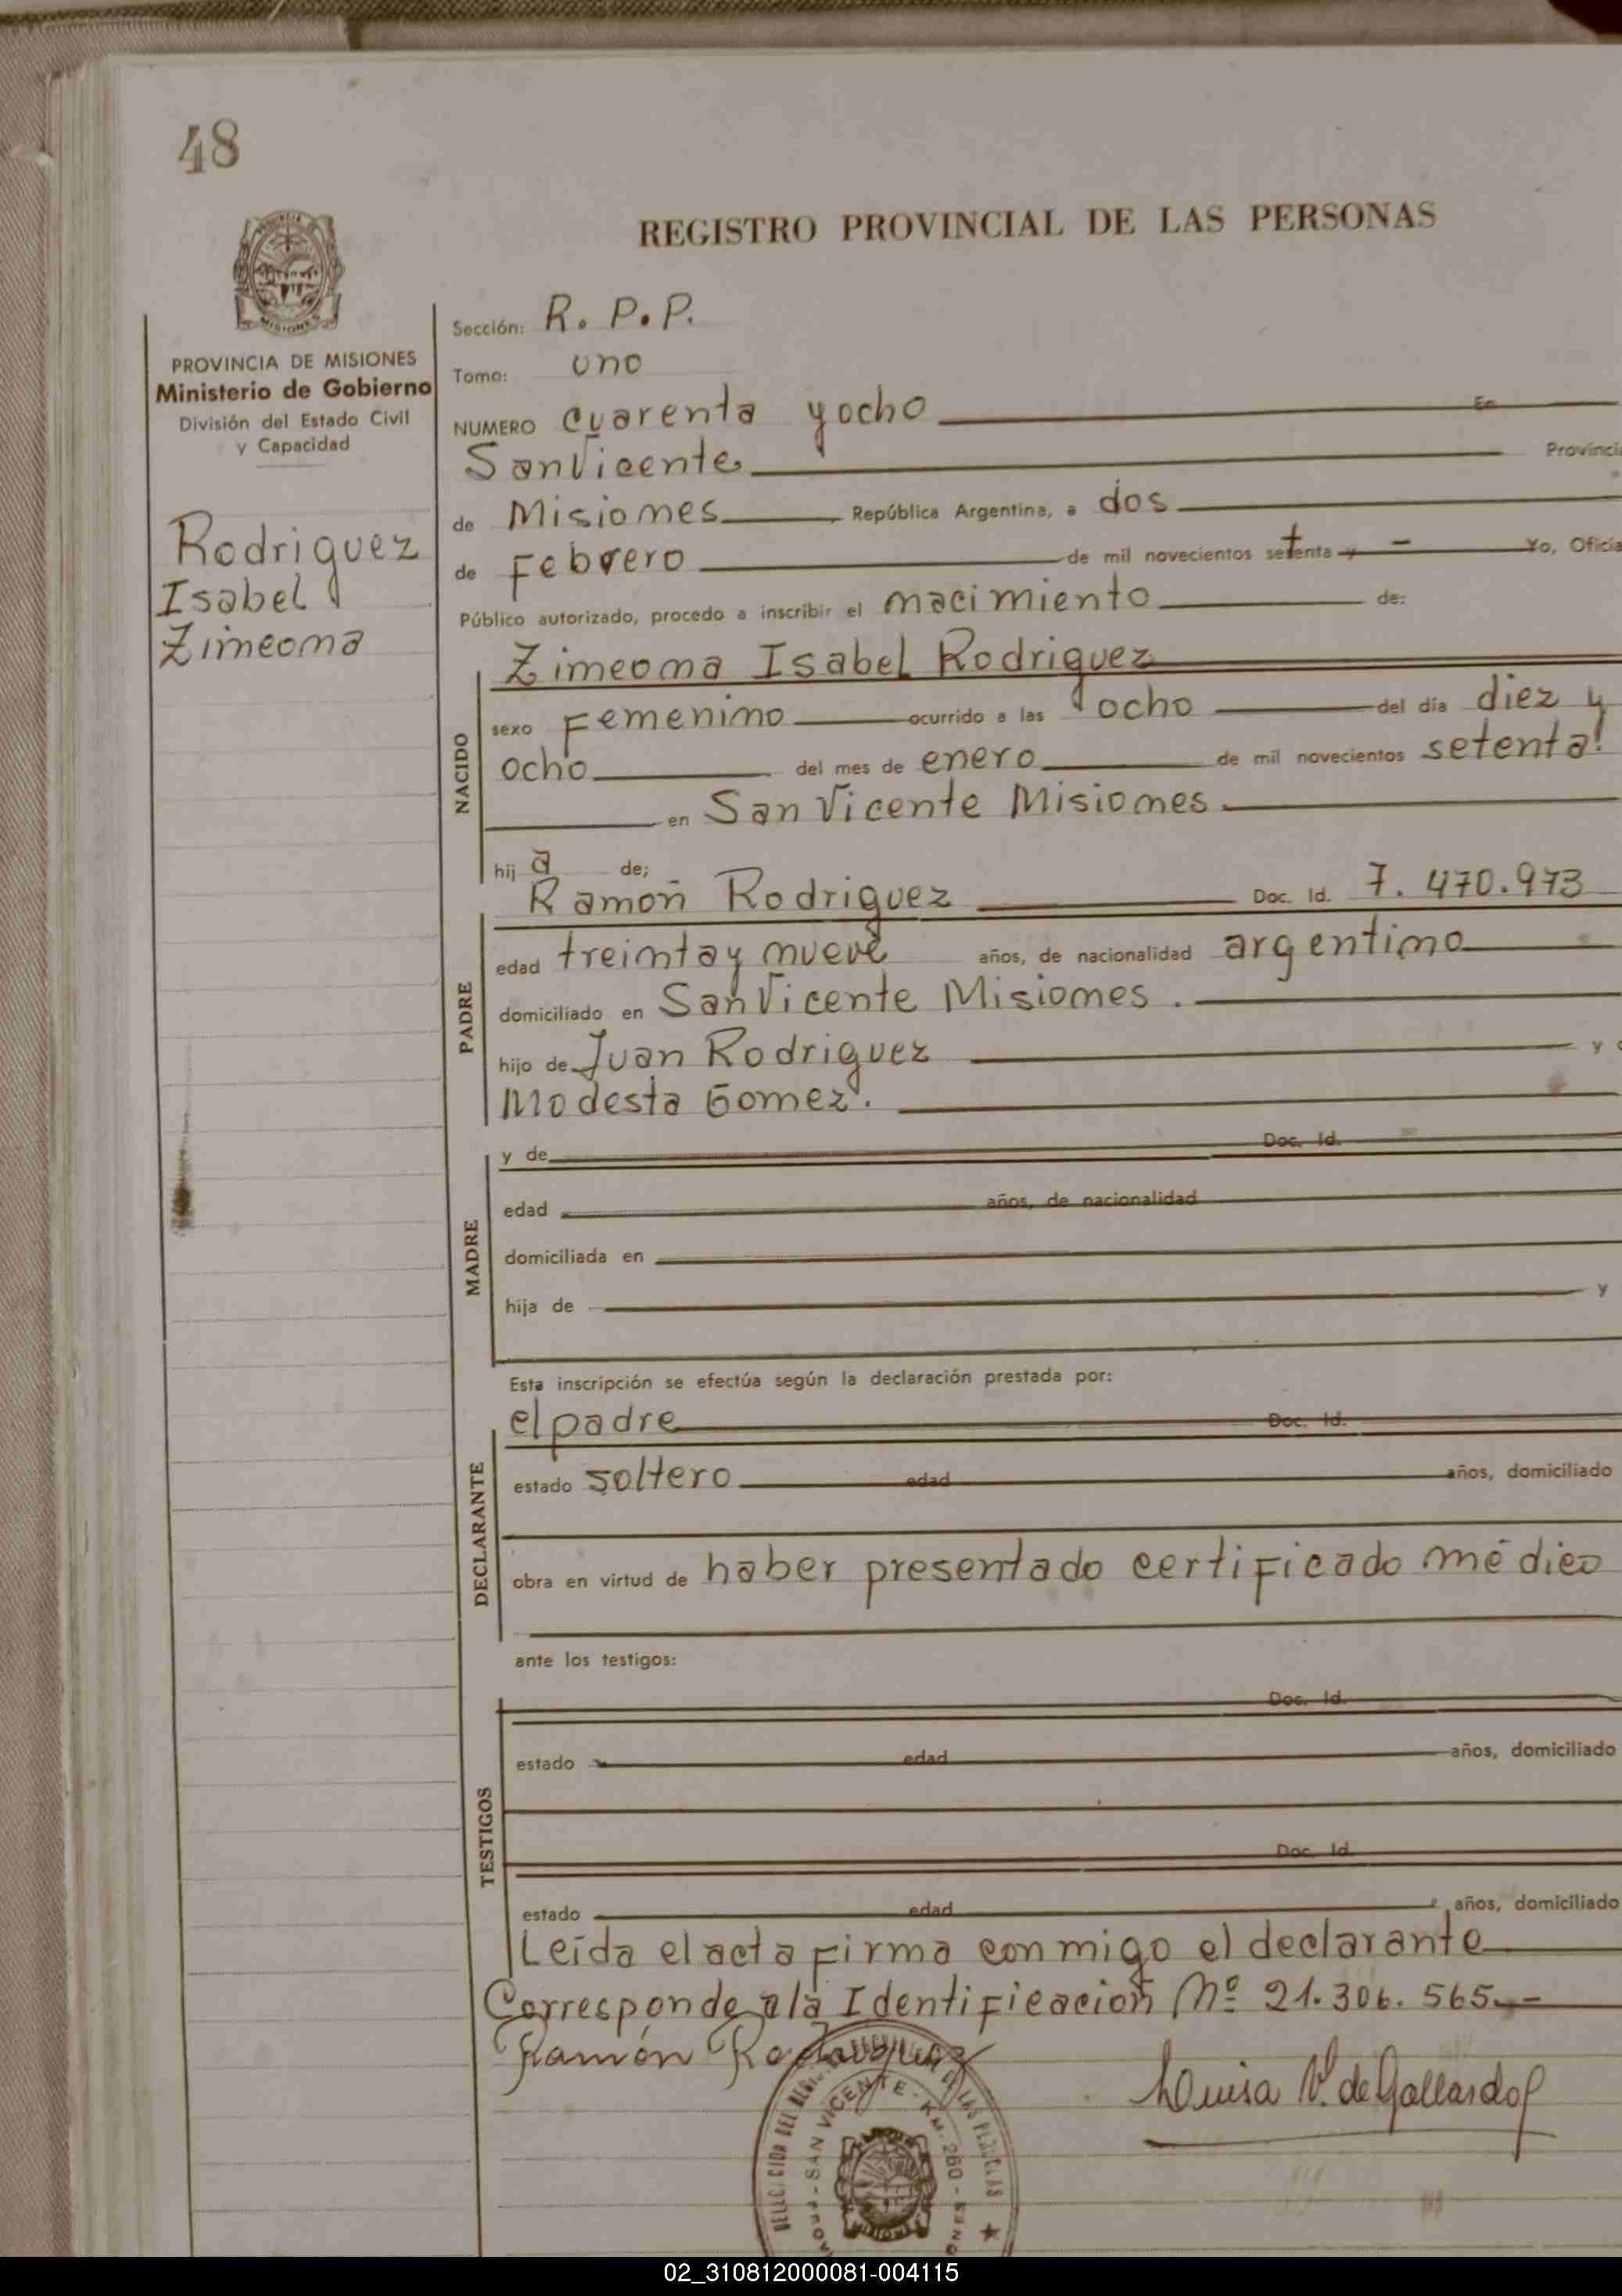 48
REGISTRO PROVINCIAL DE LAS PERSONAS
MISIONES
PROVINCIA DE MISIONES
Ministerio de Gobierno
División del Estado Civil
y Capacidad
Rodriguez
Isabel
Zimeoma
Sección: R. P. P.
Tomo: uno
NUMERO cuarenta y ocho En
San Vicente Provincia
de Misiones República Argentina, a dos
de Febrero de mil novecientos setenta y - Yo, Oficia
Público autorizado, procedo a inscribir el nacimiento de:
NACIDO
Zimeoma Isabel Rodriguez
sexo Femenino ocurrido a las ocho del día diez y
ocho del mes de enero de mil novecientos setenta
en San Vicente Misiones
hij a de;
PADRE
Ramón Rodriguez Doc. Id. 7.470.973
edad treinta y nueve años, de nacionalidad argentino
domiciliado en San Vicente Misiones.
hijo de Juan Rodriguez y
Modesta Gomez.
MADRE
y de Doc. Id.
edad años, de nacionalidad
domiciliada en
hija de y
Esta inscripción se efectúa según la declaración prestada por:
DECLARANTE
el padre Doc. Id.
estado soltero edad años, domiciliado
obra en virtud de haber presentado certificado médico
ante los testigos:
TESTIGOS
Doc. Id.
estado edad años, domiciliado
Doc. Id.
estado edad años, domiciliado
Leída el acta firma conmigo el declarante
Corresponde a la Identificación Nº 21.306.565.-
Ramón Rodriguez
Luisa V. de Gallardo
DEL LAS PERSONAS
SAN VICENTE - KM. 260 -
02_310812000081-004115